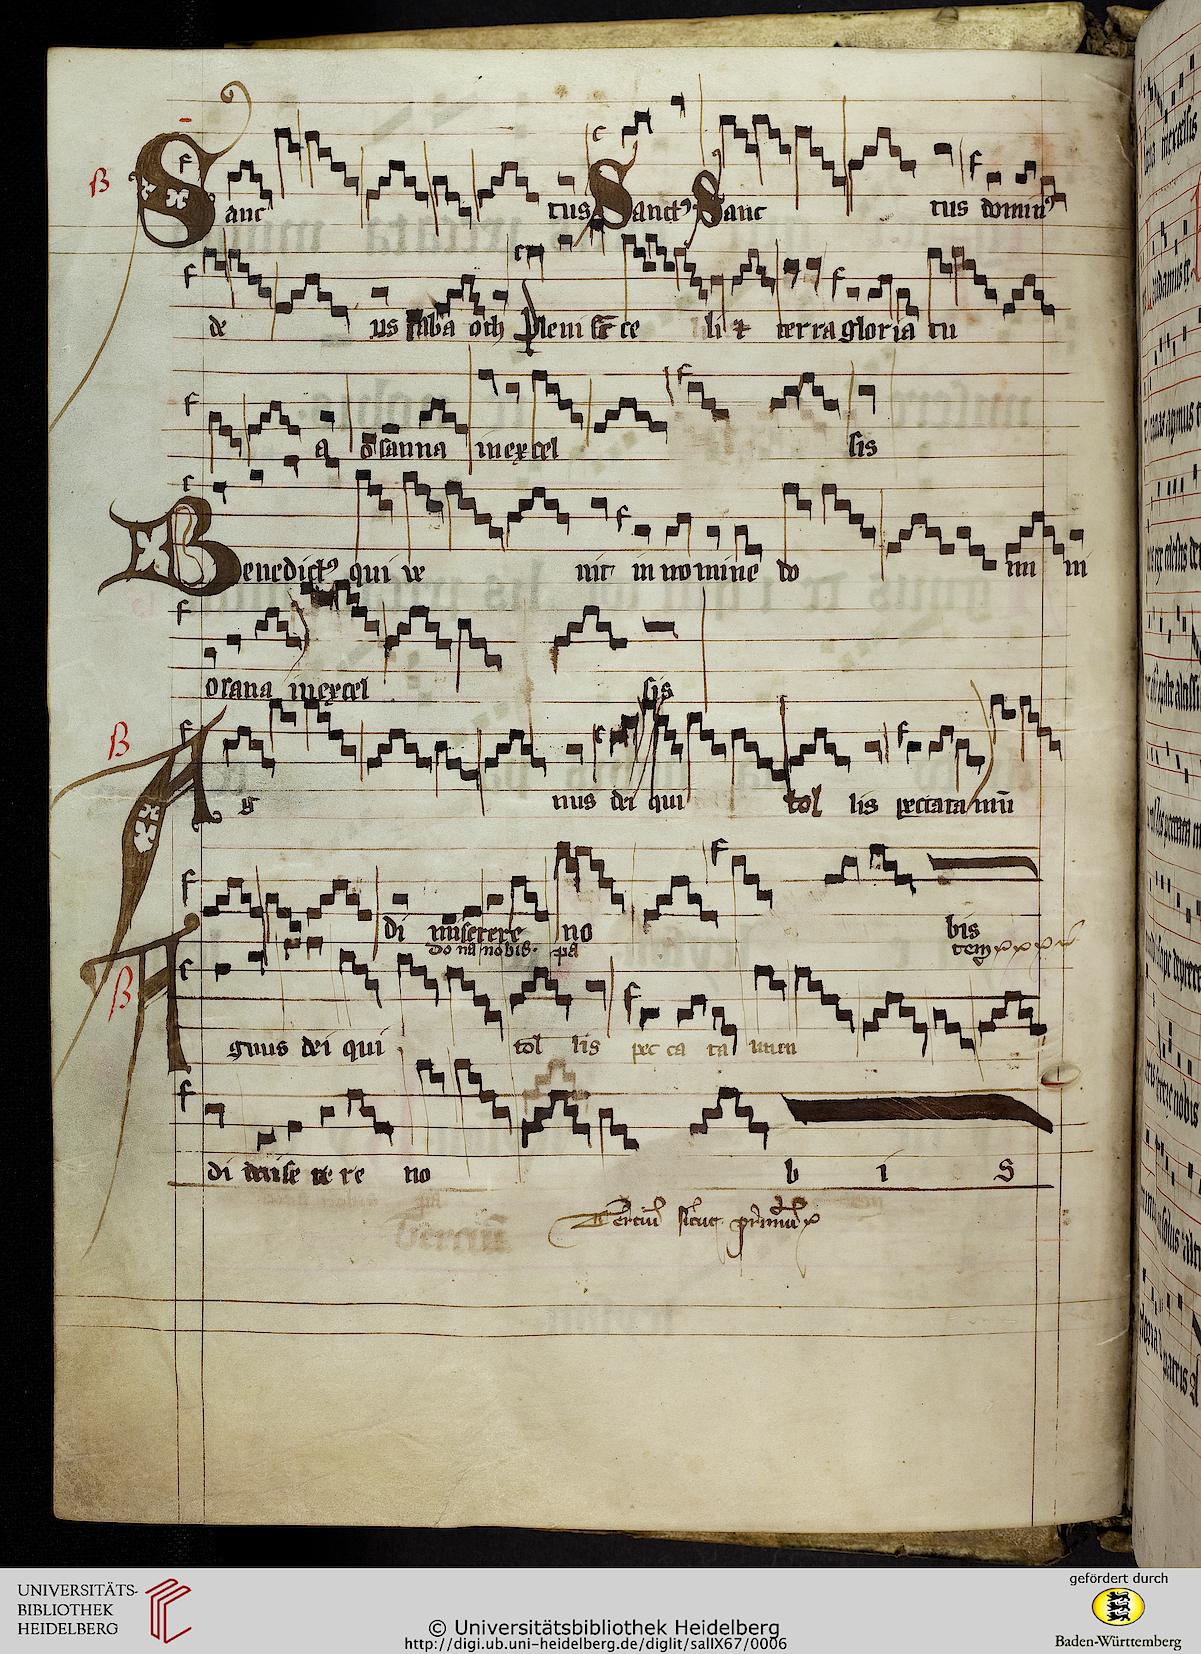 Sanc tus Sanctꝰ Sanc tus dominꝰ
de us saba oth Pleni st ce li et terra gloria tu
a osanna in excel sis
Benedictꝰ qui ve nit in nomine do mi ni
osana in excel sis
Ag nus dei qui tol lis peccata mū
di miserere no bis
do na nobis pa cem
Agnus dei qui tol lis pec ca ta mun
di mise re re no b i s
Terciū sicut primū
UNIVERSITÄTS-
BIBLIOTHEK
HEIDELBERG
© Universitätsbibliothek Heidelberg
http://digi.ub.uni-heidelberg.de/diglit/salIX67/0006
gefördert durch
Baden-Württemberg